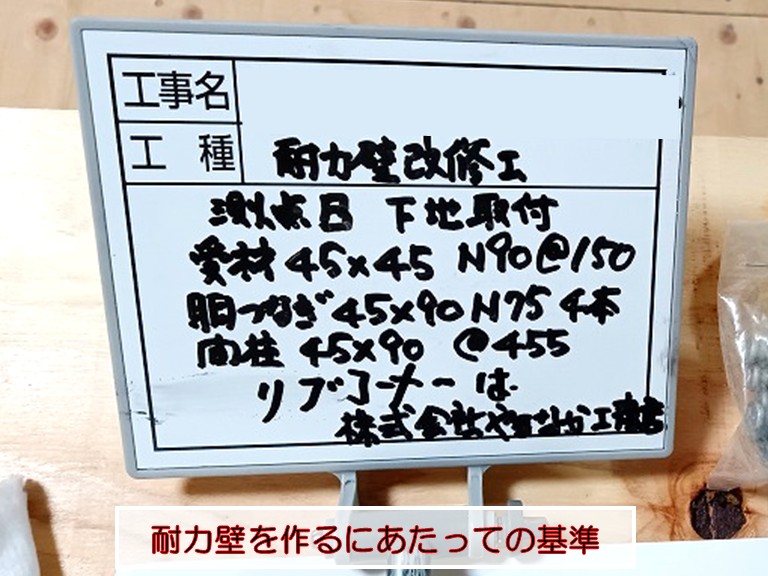 工事名
工種 耐力壁改修工
測点B 下地取付
受材 45×45 N90@150
胴つなぎ 45×90 N75 4本
間柱 45×90 @455
リブコーナーは
株式会社やまなか工務店
耐力壁を作るにあたっての基準